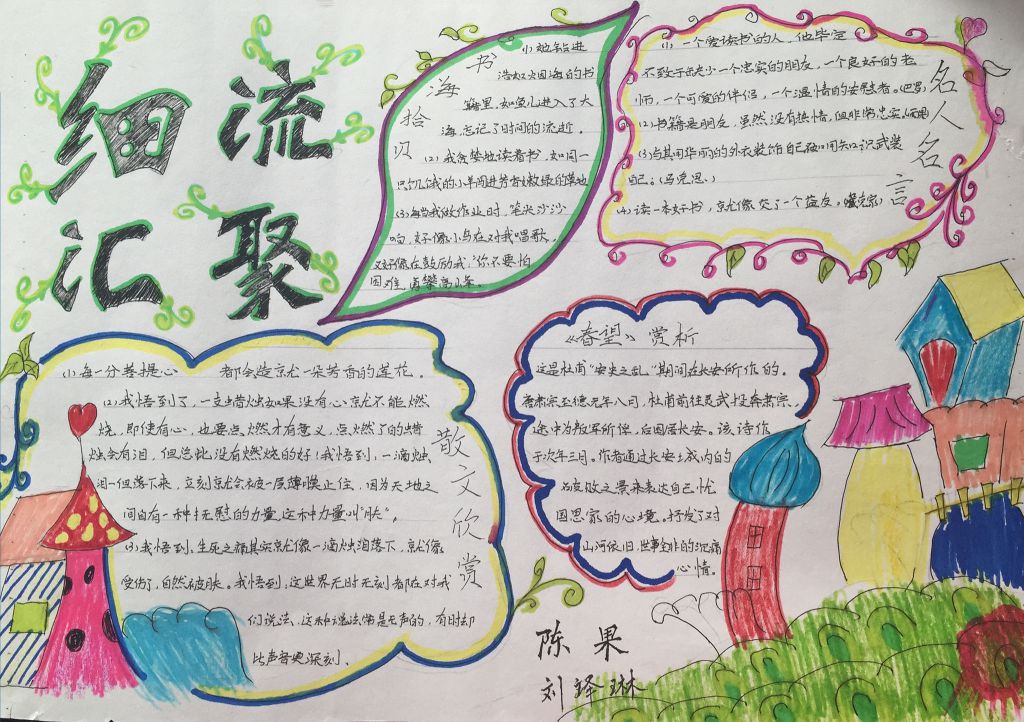 细流
汇聚
书海拾贝
(1)她钻进
浩如烟海的书
籍里,如鱼儿进入了大
海,忘记了时间的流逝。
(2)我贪婪地读着书,如同一
只饥饿的小羊闯进芳香嫩绿的草地
(3)每当我做作业时,笔尖沙沙
响,好像小鸟在对我唱歌,
又好像在鼓励我:你不要怕
困难,勇攀高峰。
名人名言
(1)一个爱读书的人,他毕定
不致于缺少一个忠实的朋友,一个良好的老
师,一个可爱的伴侣,一个温情的安慰者。(巴罗)
(2)书籍是朋友,虽然没有热情,但非常忠实
(3)与其用华丽的外衣装饰自己,不如用知识武装
自己。(马克思)
(4)读一本好书,就像交了一个益友。
散文欣赏
(1)每一分菩提心 都会是就一朵芳香的莲花。
(2)我悟到了,一支蜡烛如果没有心就不能燃
烧,即使有心,也要点燃才有意义,点燃了的蜡
烛会有泪,但总比没有燃烧的好!我悟到,一滴烛
泪一但落下来,立刻就会被一层薄膜止住,因为天地之
间自有一种抚慰的力量,这种力量叫“肤”。
(3)我悟到,生死之痛其实就像一滴烛泪落下,就像
受伤了,自然被肤。我悟到,这世界无时无刻都在对我
们说法,这种说法常是无声的,有时却
比声音更深刻、
《春望》赏析
这是杜甫“安史之乱”期间在长安所作的。
唐肃宗至德元年八月,杜甫前往灵武投奔肃宗,
途中为叛军所俘,后困居长安。该诗作
于次年三月。作者通过长安土城内的
破败之景来表达自己忧
国思家的心境。抒发了对
山河依旧,世事全非的沉痛
心情。
陈果
刘绎琳